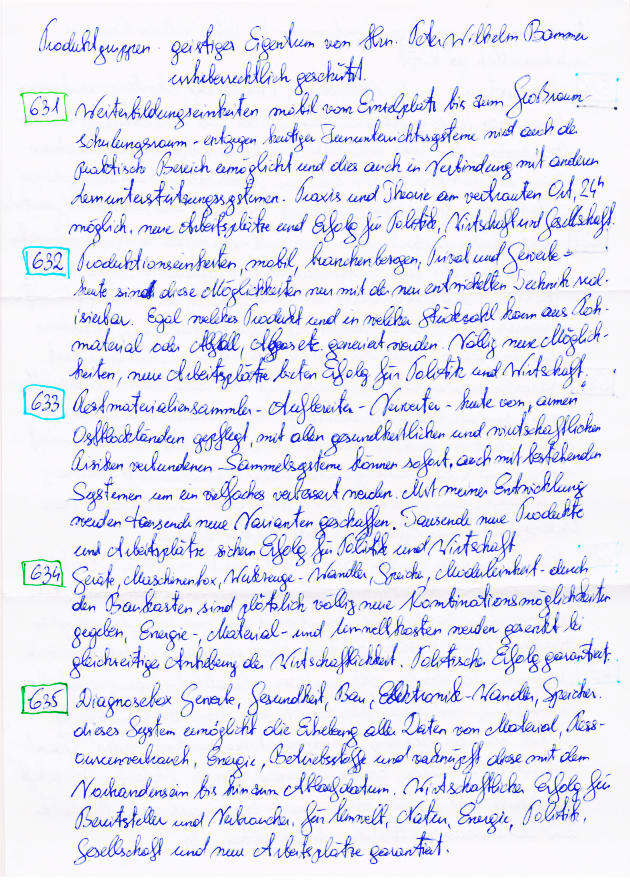 Produktgruppen - geistiges Eigentum von Hrn. Peter Wilhelm Bammer
urheberrechtlich geschützt.
631 Weiterbildungseinheiten mobil vom Einzelplatz bis zum Großraum-
schulungsraum - entgegen heutiger Fernunterrichtssysteme wird auch der
praktische Bereich ermöglicht und dies auch in Verbindung mit anderen
Lernunterstützungssystemen. Praxis und Theorie am vertrauten Ort, 24h
möglich, neue Arbeitsplätze und Erfolg für Politik, Wirtschaft und Gesellschaft.
632 Produktionseinheiten, mobil, branchenbezogen, Privat und Gewerbe -
heute sind diese Möglichkeiten nur mit der neu entwickelten Technik real-
isierbar. Egal welches Produkt und in welcher Stückzahl kann aus Roh-
material oder Abfall, Abgas etc. generiert werden. Völlig neue Möglich-
keiten, neue Arbeitsplätze bieten Erfolg für Politik und Wirtschaft.
633 Restmaterialiensammler - Aufbereiter - Verwerter - heute von "armen"
Ostblockländern gepflegt, mit allen gesundheitlichen und wirtschaftlichen
Risiken verbundenen Sammelsysteme können sofort, auch mit bestehenden
Systemen um ein vielfaches verbessert werden. Mit meiner Entwicklung
werden tausende neue Varianten geschaffen. Tausende neue Produkte
und Arbeitsplätze sichern Erfolg für Politik und Wirtschaft
634 Geräte, Maschinenbox, Werkzeuge - Wandler, Speicher, Moduleinheit - durch
den Baukasten sind plötzlich völlig neue Kombinationsmöglichkeiten
gegeben, Energie-, Material- und Umweltkosten werden gesenkt bei
gleichzeitiger Anhebung der Wirtschaftlichkeit. Politischer Erfolg garantiert.
635 Diagnosebox Gewerbe, Gesundheit, Bau, Elektronik - Wandler, Speicher.
dieses System ermöglicht die Erhebung aller Daten von Material, Ress-
ourcenverbrauch, Energie, Betriebsstoffe und verknüpft diese mit dem
Vorhandensein bis hin zum Ablaufdatum. Wirtschaftlicher Erfolg für
Bereitsteller und Verbraucher, für Umwelt, Natur, Energie, Politik,
Gesellschaft und neue Arbeitsplätze garantiert.